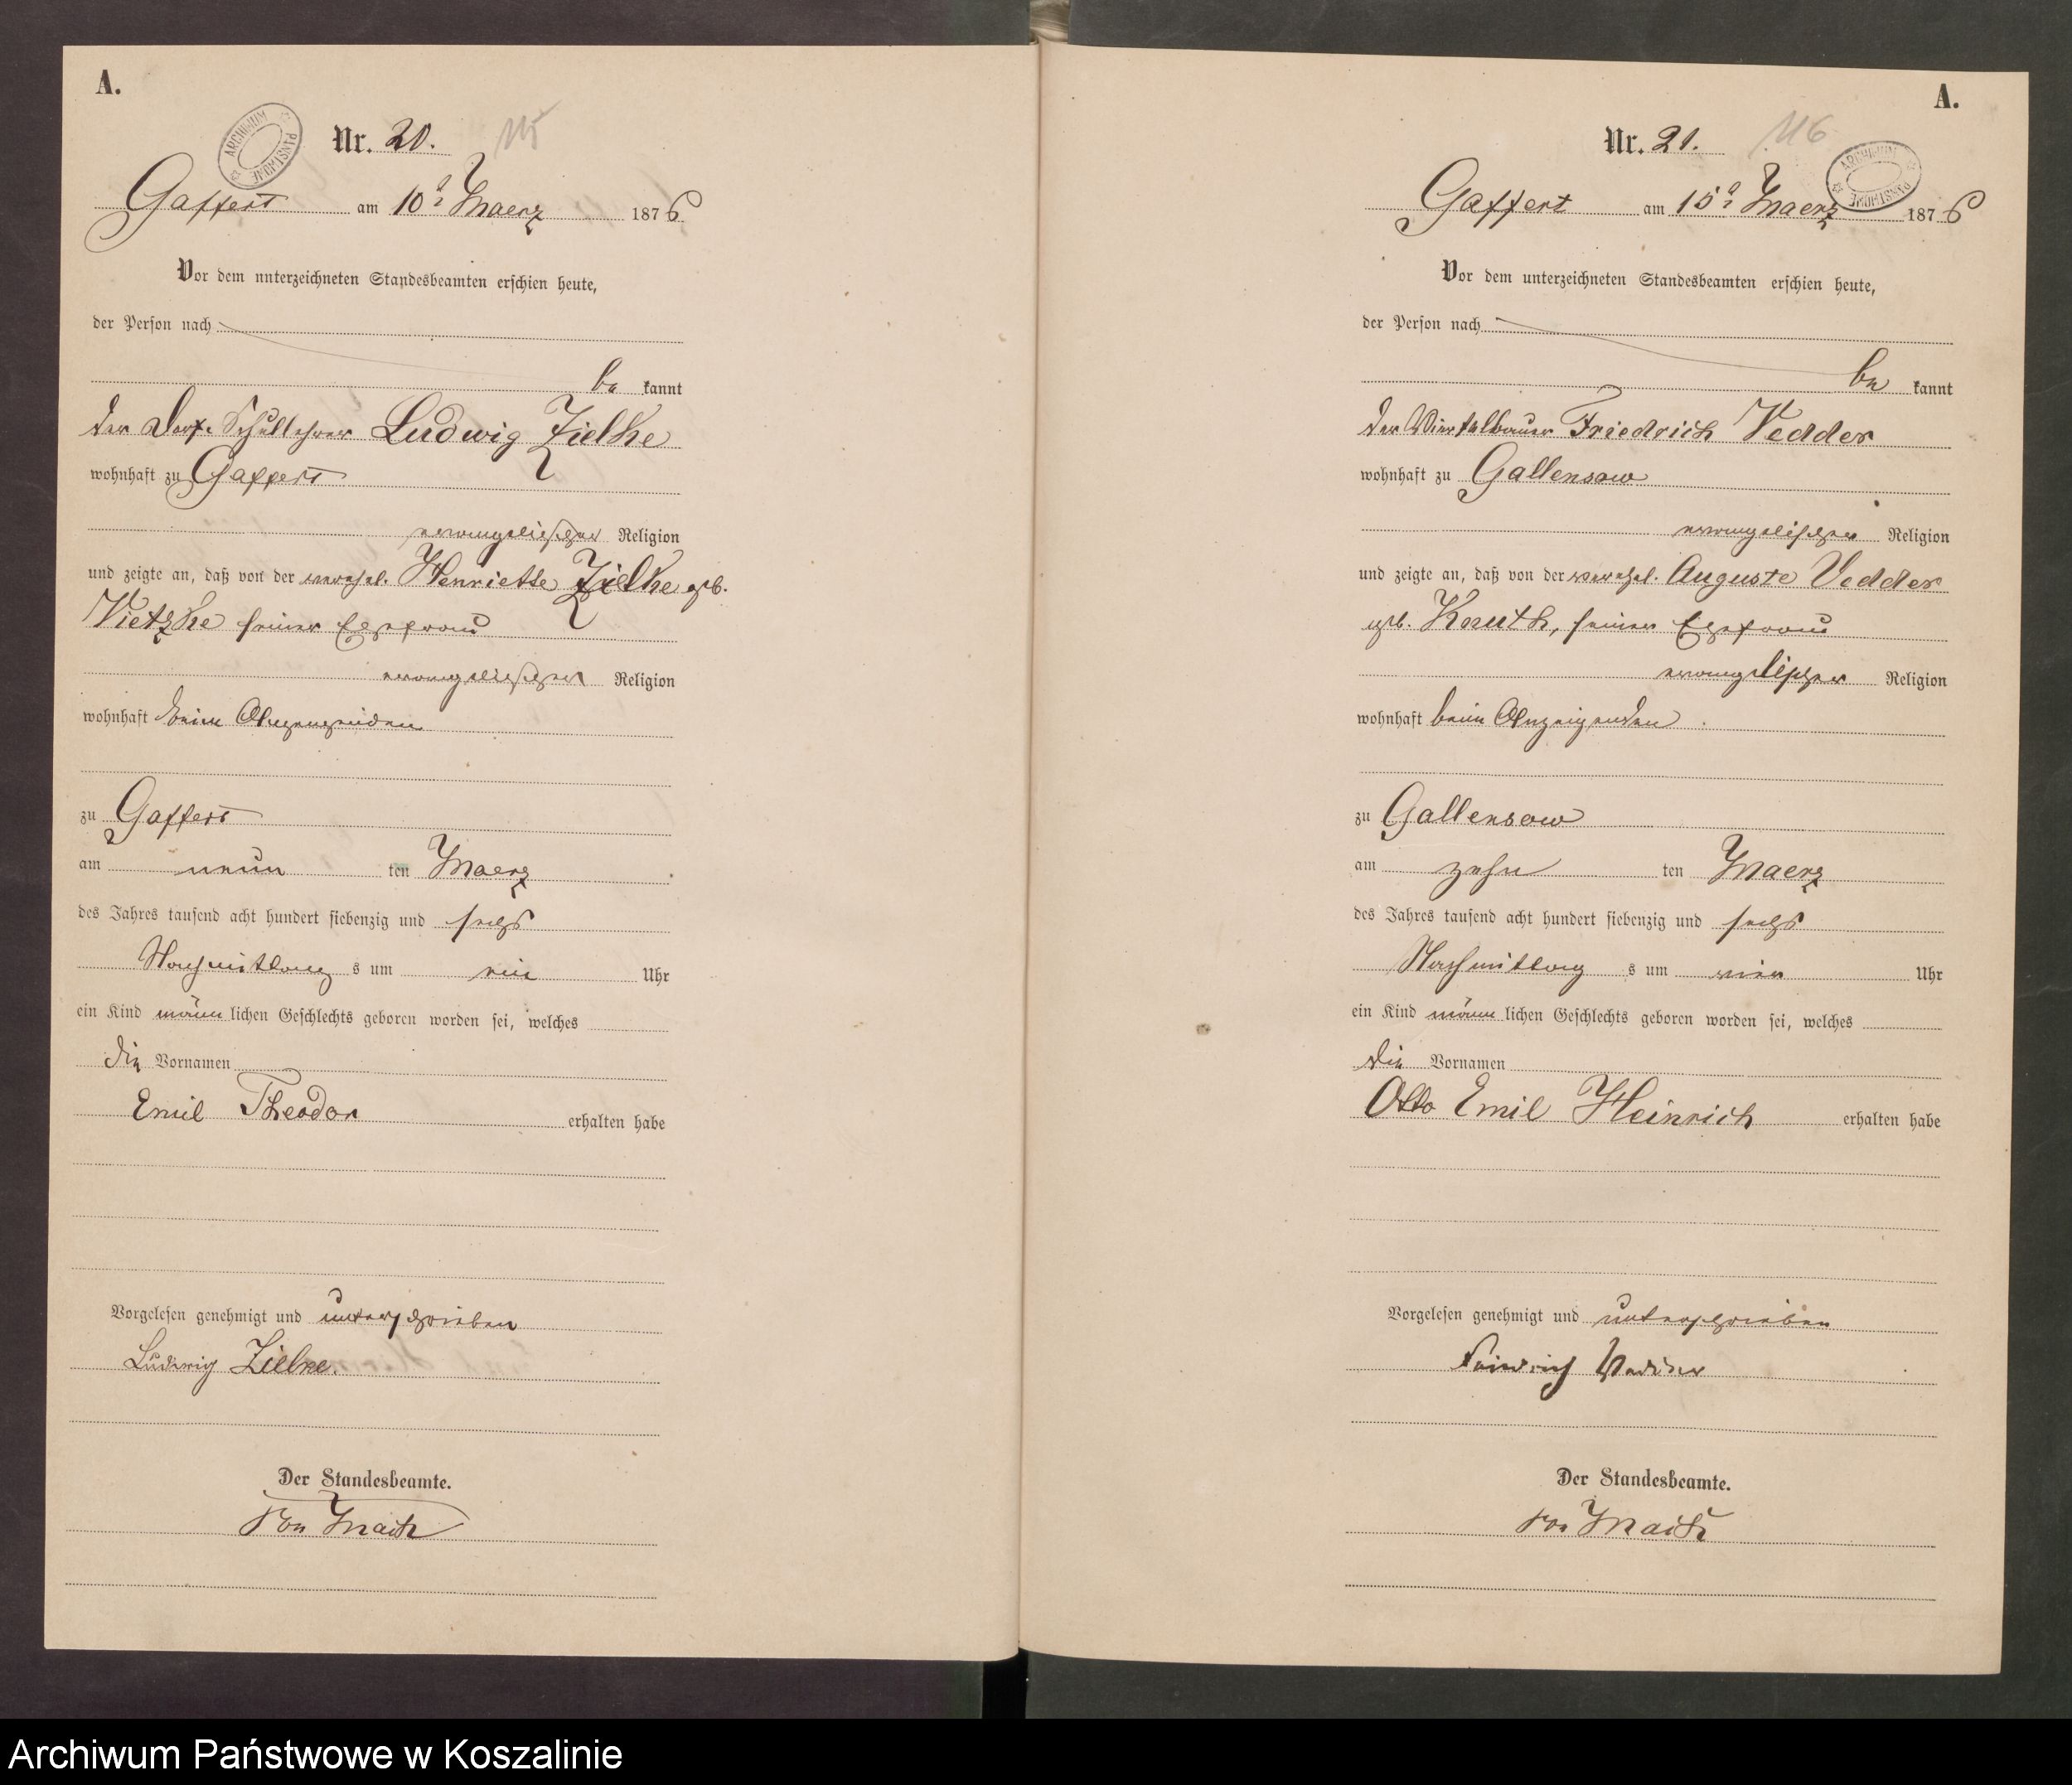 A.
Nr. 20. 115
ARCHIWUM PAŃSTWOWE
Gaffert am 10t Maerz 1876
Vor dem unterzeichneten Standesbeamten erschien heute,
der Person nach
be kannt
der Dorf-Schullehrer Ludwig Zielke
wohnhaft zu Gaffert
evangelischer Religion
und zeigte an, daß von der verehel. Henriette Zielke geb.
Vietzke seiner Ehefrau
evangelischer Religion
wohnhaft beim Anzeigenden
zu Gaffert
am neun ten Maerz
des Jahres tausend acht hundert siebenzig und sechs
Nachmittags um ein Uhr
ein Kind männlichen Geschlechts geboren worden sei, welches
die Vornamen
Emil Theodor erhalten habe
Vorgelesen genehmigt und unterschrieben
Ludwig Zielke.
Der Standesbeamte.
von
A.
Nr. 21. 116
ARCHIWUM PAŃSTWOWE
Gaffert am 15t Maerz 1876
Vor dem unterzeichneten Standesbeamten erschien heute,
der Person nach
be kannt
der Viertelbauer Friedrich Vedder
wohnhaft zu Gallensow
evangelischer Religion
und zeigte an, daß von der verehel. Auguste Vedder
geb. Knuth, seiner Ehefrau
evangelischer Religion
wohnhaft beim Anzeigenden
zu Gallensow
am zehn ten Maerz
des Jahres tausend acht hundert siebenzig und sechs
Nachmittags um vier Uhr
ein Kind männlichen Geschlechts geboren worden sei, welches
die Vornamen
Otto Emil Heinrich erhalten habe
Vorgelesen genehmigt und unterschrieben
Friedrich Vedder
Der Standesbeamte.
von
Archiwum Państwowe w Koszalinie